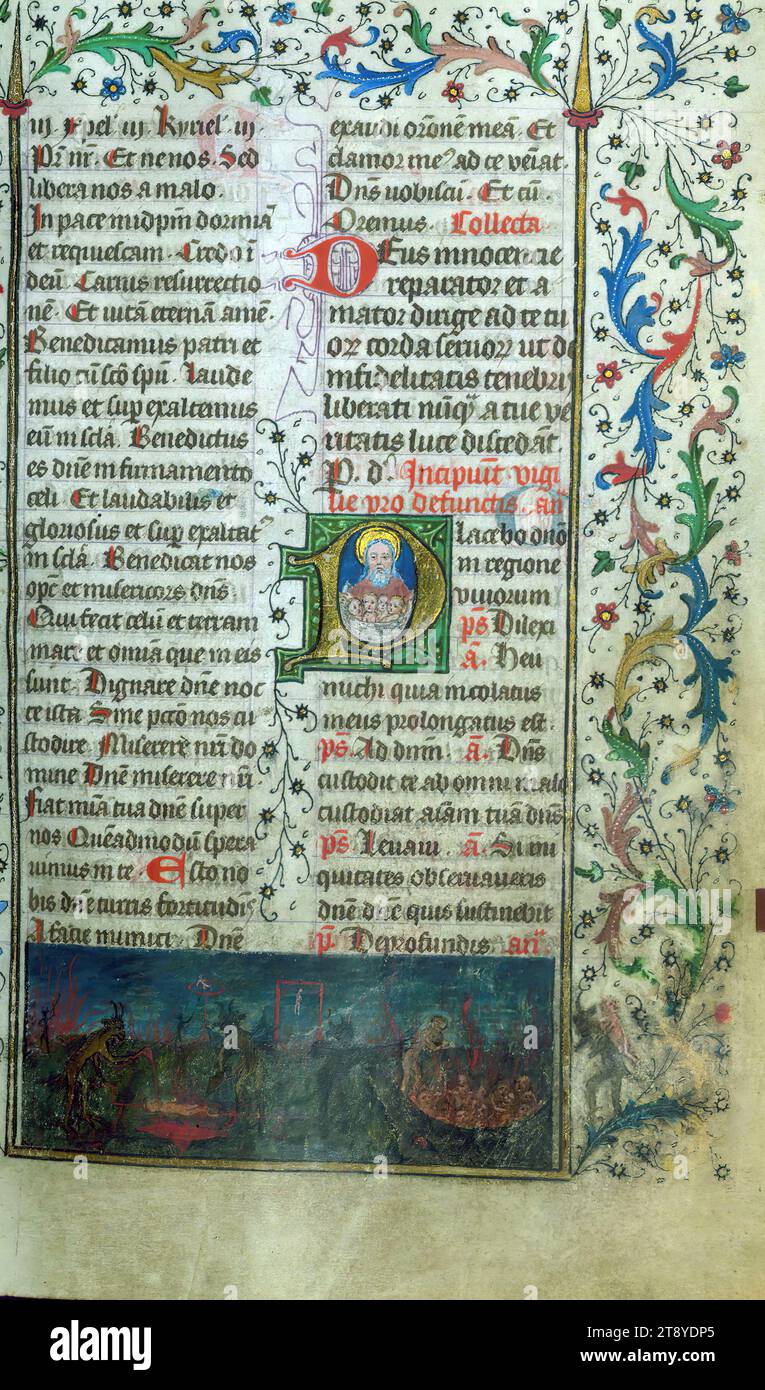 iij. Xpel. iij. Kyriel. iij.
Pr̄ nr̄. Et ne nos. Sed
libera nos a malo.
In pace in id ipm̄ dormiā
et requiescam. Credo ī
deū. Carnis resurrectio
nē. Et uitā eternā amē.
Benedicamus patri et
filio cū sc̄o spū. laude
mus et sup exaltemus
eū in sc̄la. Benedictus
es dn̄e in firmamento
celi. Et laudabilis et
gloriosus et sup exaltat᷒
in sc̄la. Benedicat nos
opc̄ et misericors dn̄s.
Qui fecit celū et terram
mare et omīa que in eis
sunt. Dignare dn̄e noc
te ista. Sine pctō nos cu
stodire. Miserere nr̄i do
mine Dn̄e miserere nr̄i.
fiat mīa tua dn̄e super
nos Quēadmodū spera
uimus in te. Esto no
bis dn̄e turris fortitudīs
A facie inimici. Dn̄e
exaudi orōnem meā. Et
clamor me᷒ ad te veīat.
Dn̄s uobiscū. Et cū.
Oremus. Collecta.
DEus innocencie
reparator et a
mator dirige ad te tu
oꝝ corda seruoꝝ ut de
infidelitatis tenebris
liberati nūq̄ a tue ve
ritatis luce discedāt.
P. d. Incipiūt vigi
lie pro defunctis. an̄
Placebo dn̄o
in regione
viuorum
ps̄ Dilexi
a. Heu
michi quia incolatus
meus prolongatus est.
ps̄. Ad dn̄m. a. Dn̄s
custodit te ab omni malo
custodiat aīam tuā dn̄s.
ps̄. Leuaui. a. Si ini
quitates obseruaueris
dn̄e dn̄e quis sustinebit
p̄. De profundis. an̄
alamy
Image ID: 2T8YDP5
www.alamy.com